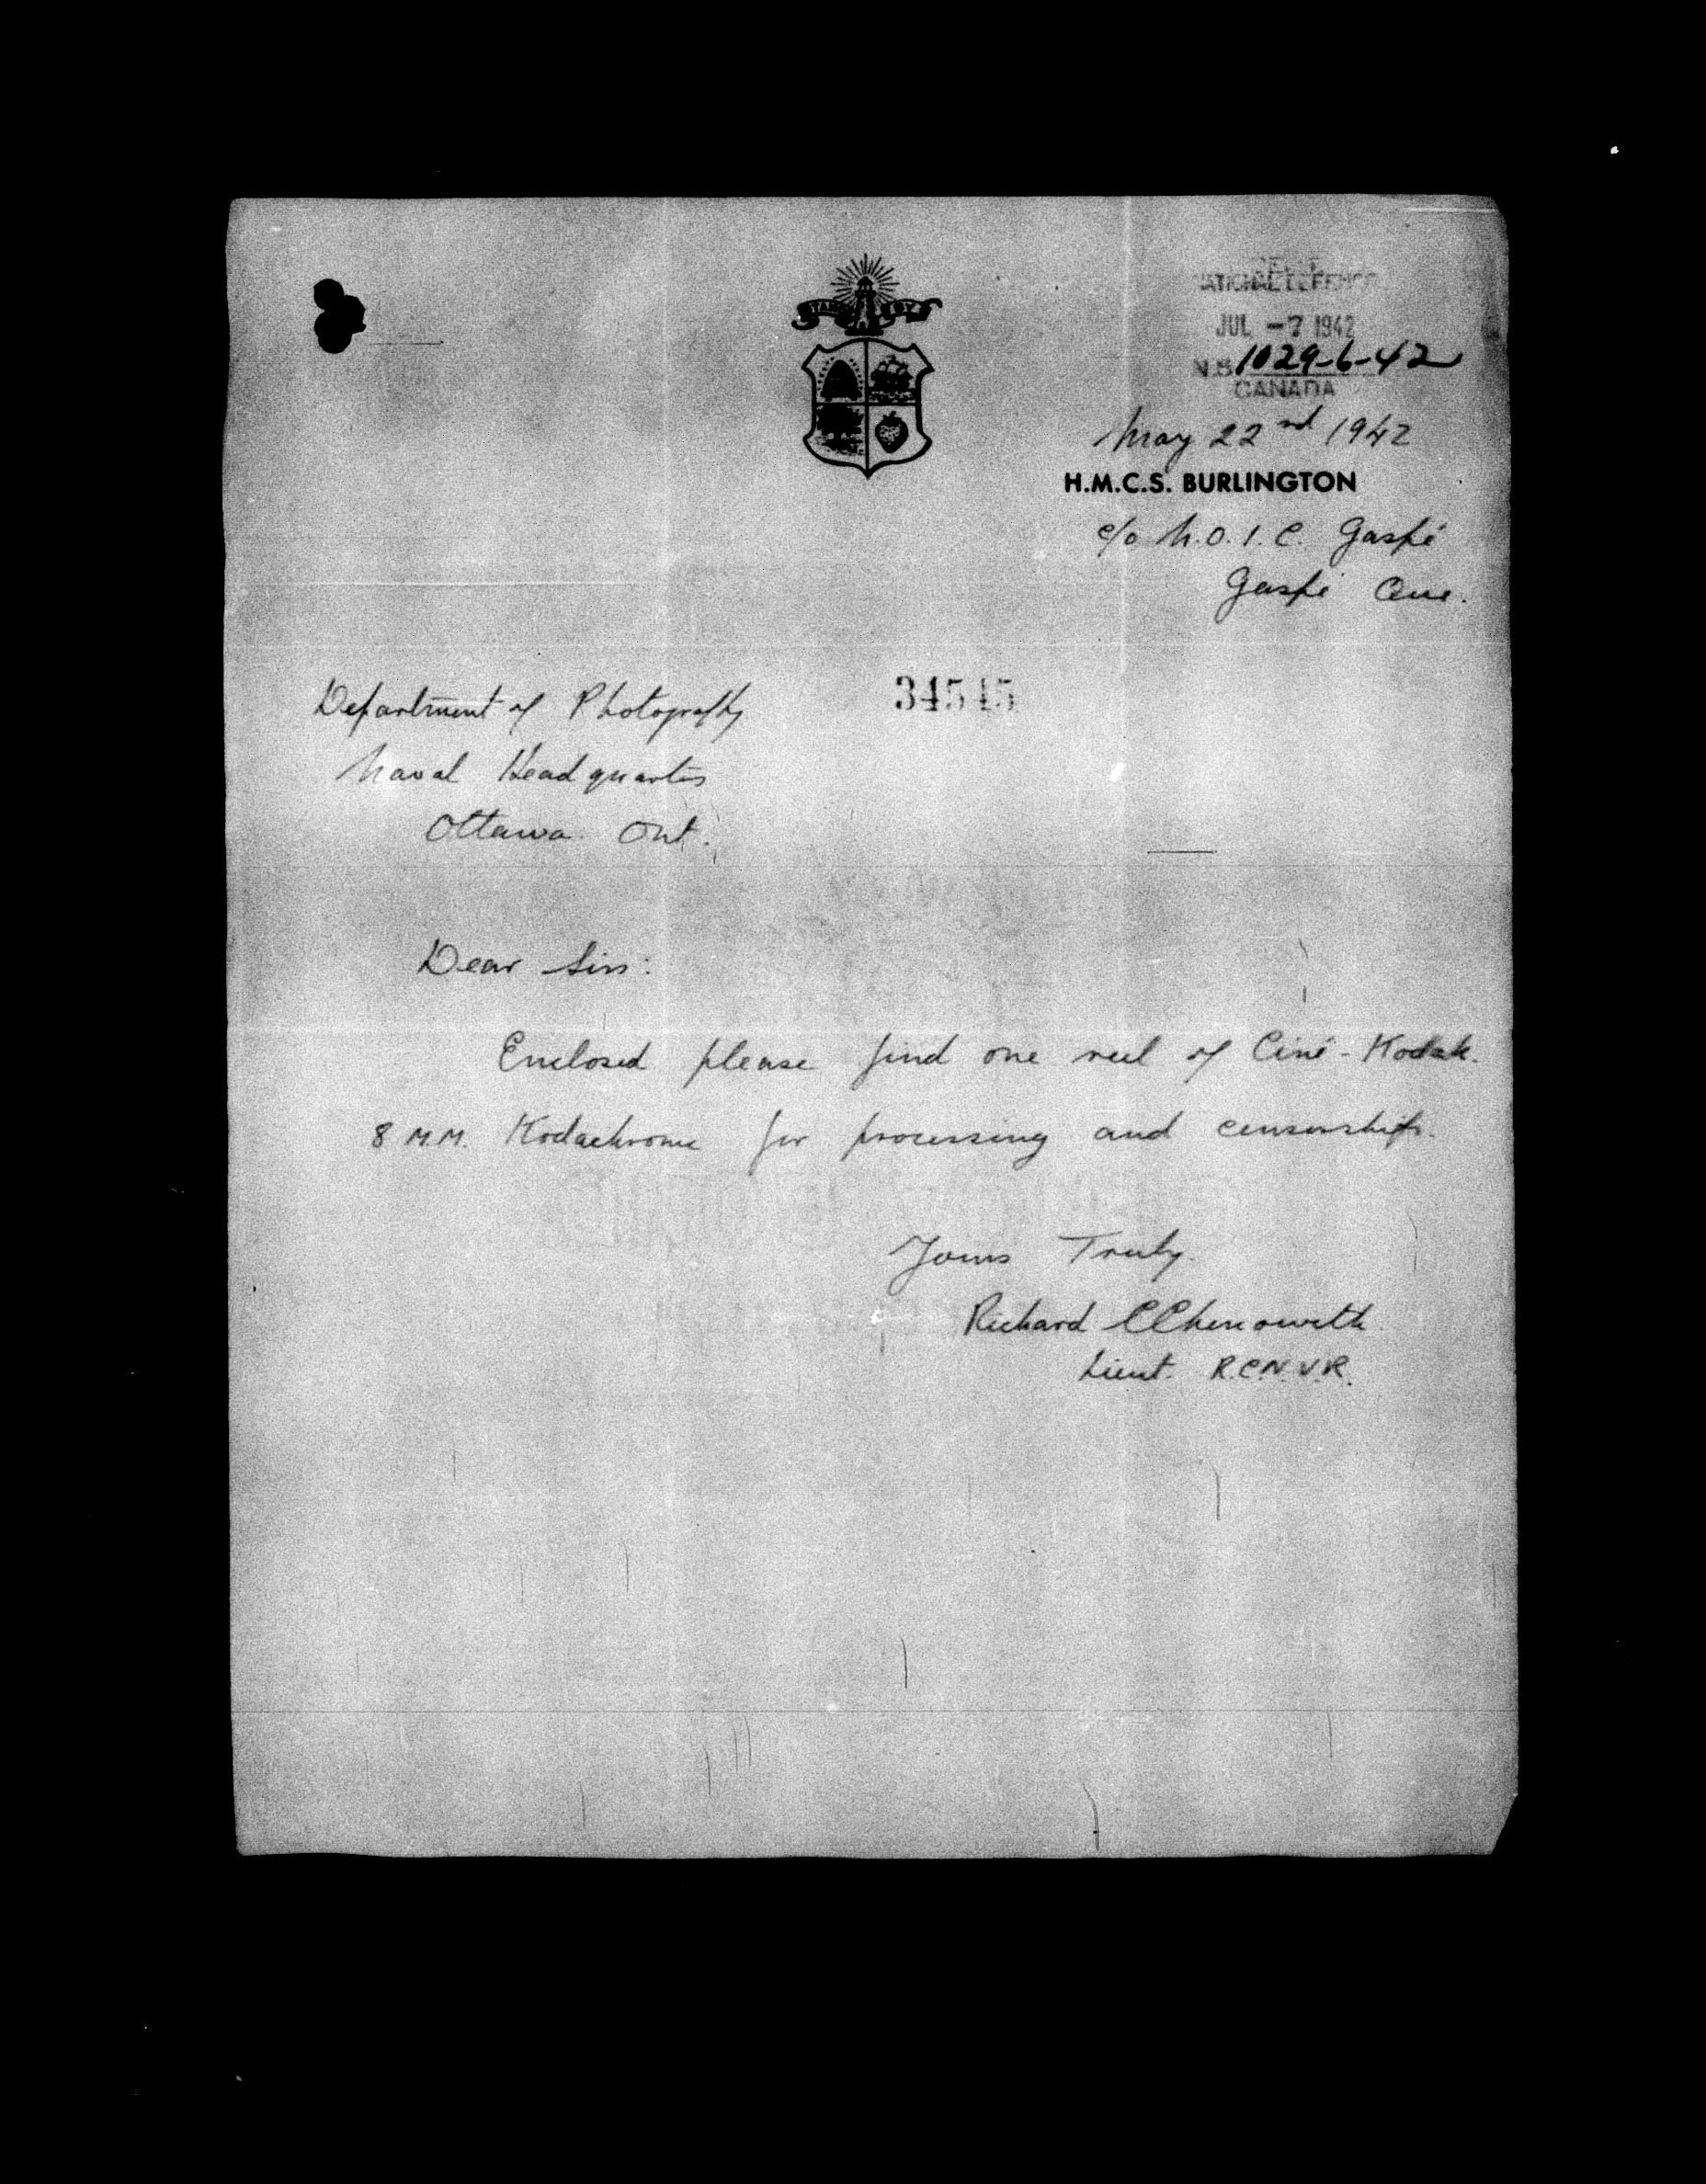 STAND BY
DEPT. OF
NATIONAL DEFENCE
JUL -7 1942
N.S. 1029-6-42
CANADA
May 22nd 1942
H.M.C.S. BURLINGTON
c/o N.O.I.C. Gaspé
Gaspé Que.
34545
Department of Photography
Naval Headquarters
Ottawa Ont.
Dear Sirs:
Enclosed please find one reel of Ciné-Kodak
8 M.M. Kodachrome for processing and censorship.
Yours Truly
Richard C Chenoweth
Lieut. R.C.N.V.R.